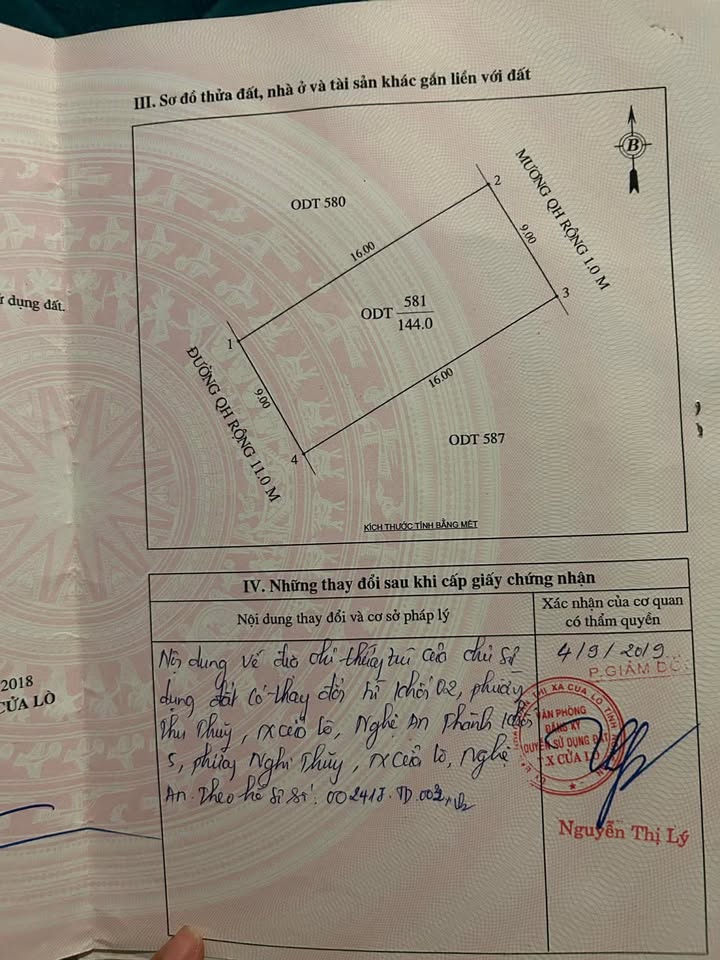 III. Sơ đồ thửa đất, nhà ở và tài sản khác gắn liền với đất
B
ODT 580
2
MƯƠNG QH RỘNG 1.0 M
16.00
9.00
ử dụng đất.
ODT 581
144.0
3
1
ĐƯỜNG QH RỘNG 11.0 M
9.00
16.00
ODT 587
4
KÍCH THƯỚC TÍNH BẰNG MÉT
IV. Những thay đổi sau khi cấp giấy chứng nhận
Nội dung thay đổi và cơ sở pháp lý
Xác nhận của cơ quan
có thẩm quyền
Nội dung về địa chỉ thường trú của chủ sử
dụng đất có thay đổi từ khối 02, phường
Thu Thủy, TX Cửa Lò, Nghệ An Thành khối
5, phường Nghi Thủy, TX Cửa Lò, Nghệ
An. Theo hồ sơ số: 002418.TD.002
4/9/2019
P.GIÁM ĐỐC
2018
CỬA LÒ
VĂN PHÒNG
ĐĂNG KÝ
QUYỀN SỬ DỤNG ĐẤT
TX CỬA LÒ
Nguyễn Thị Lý